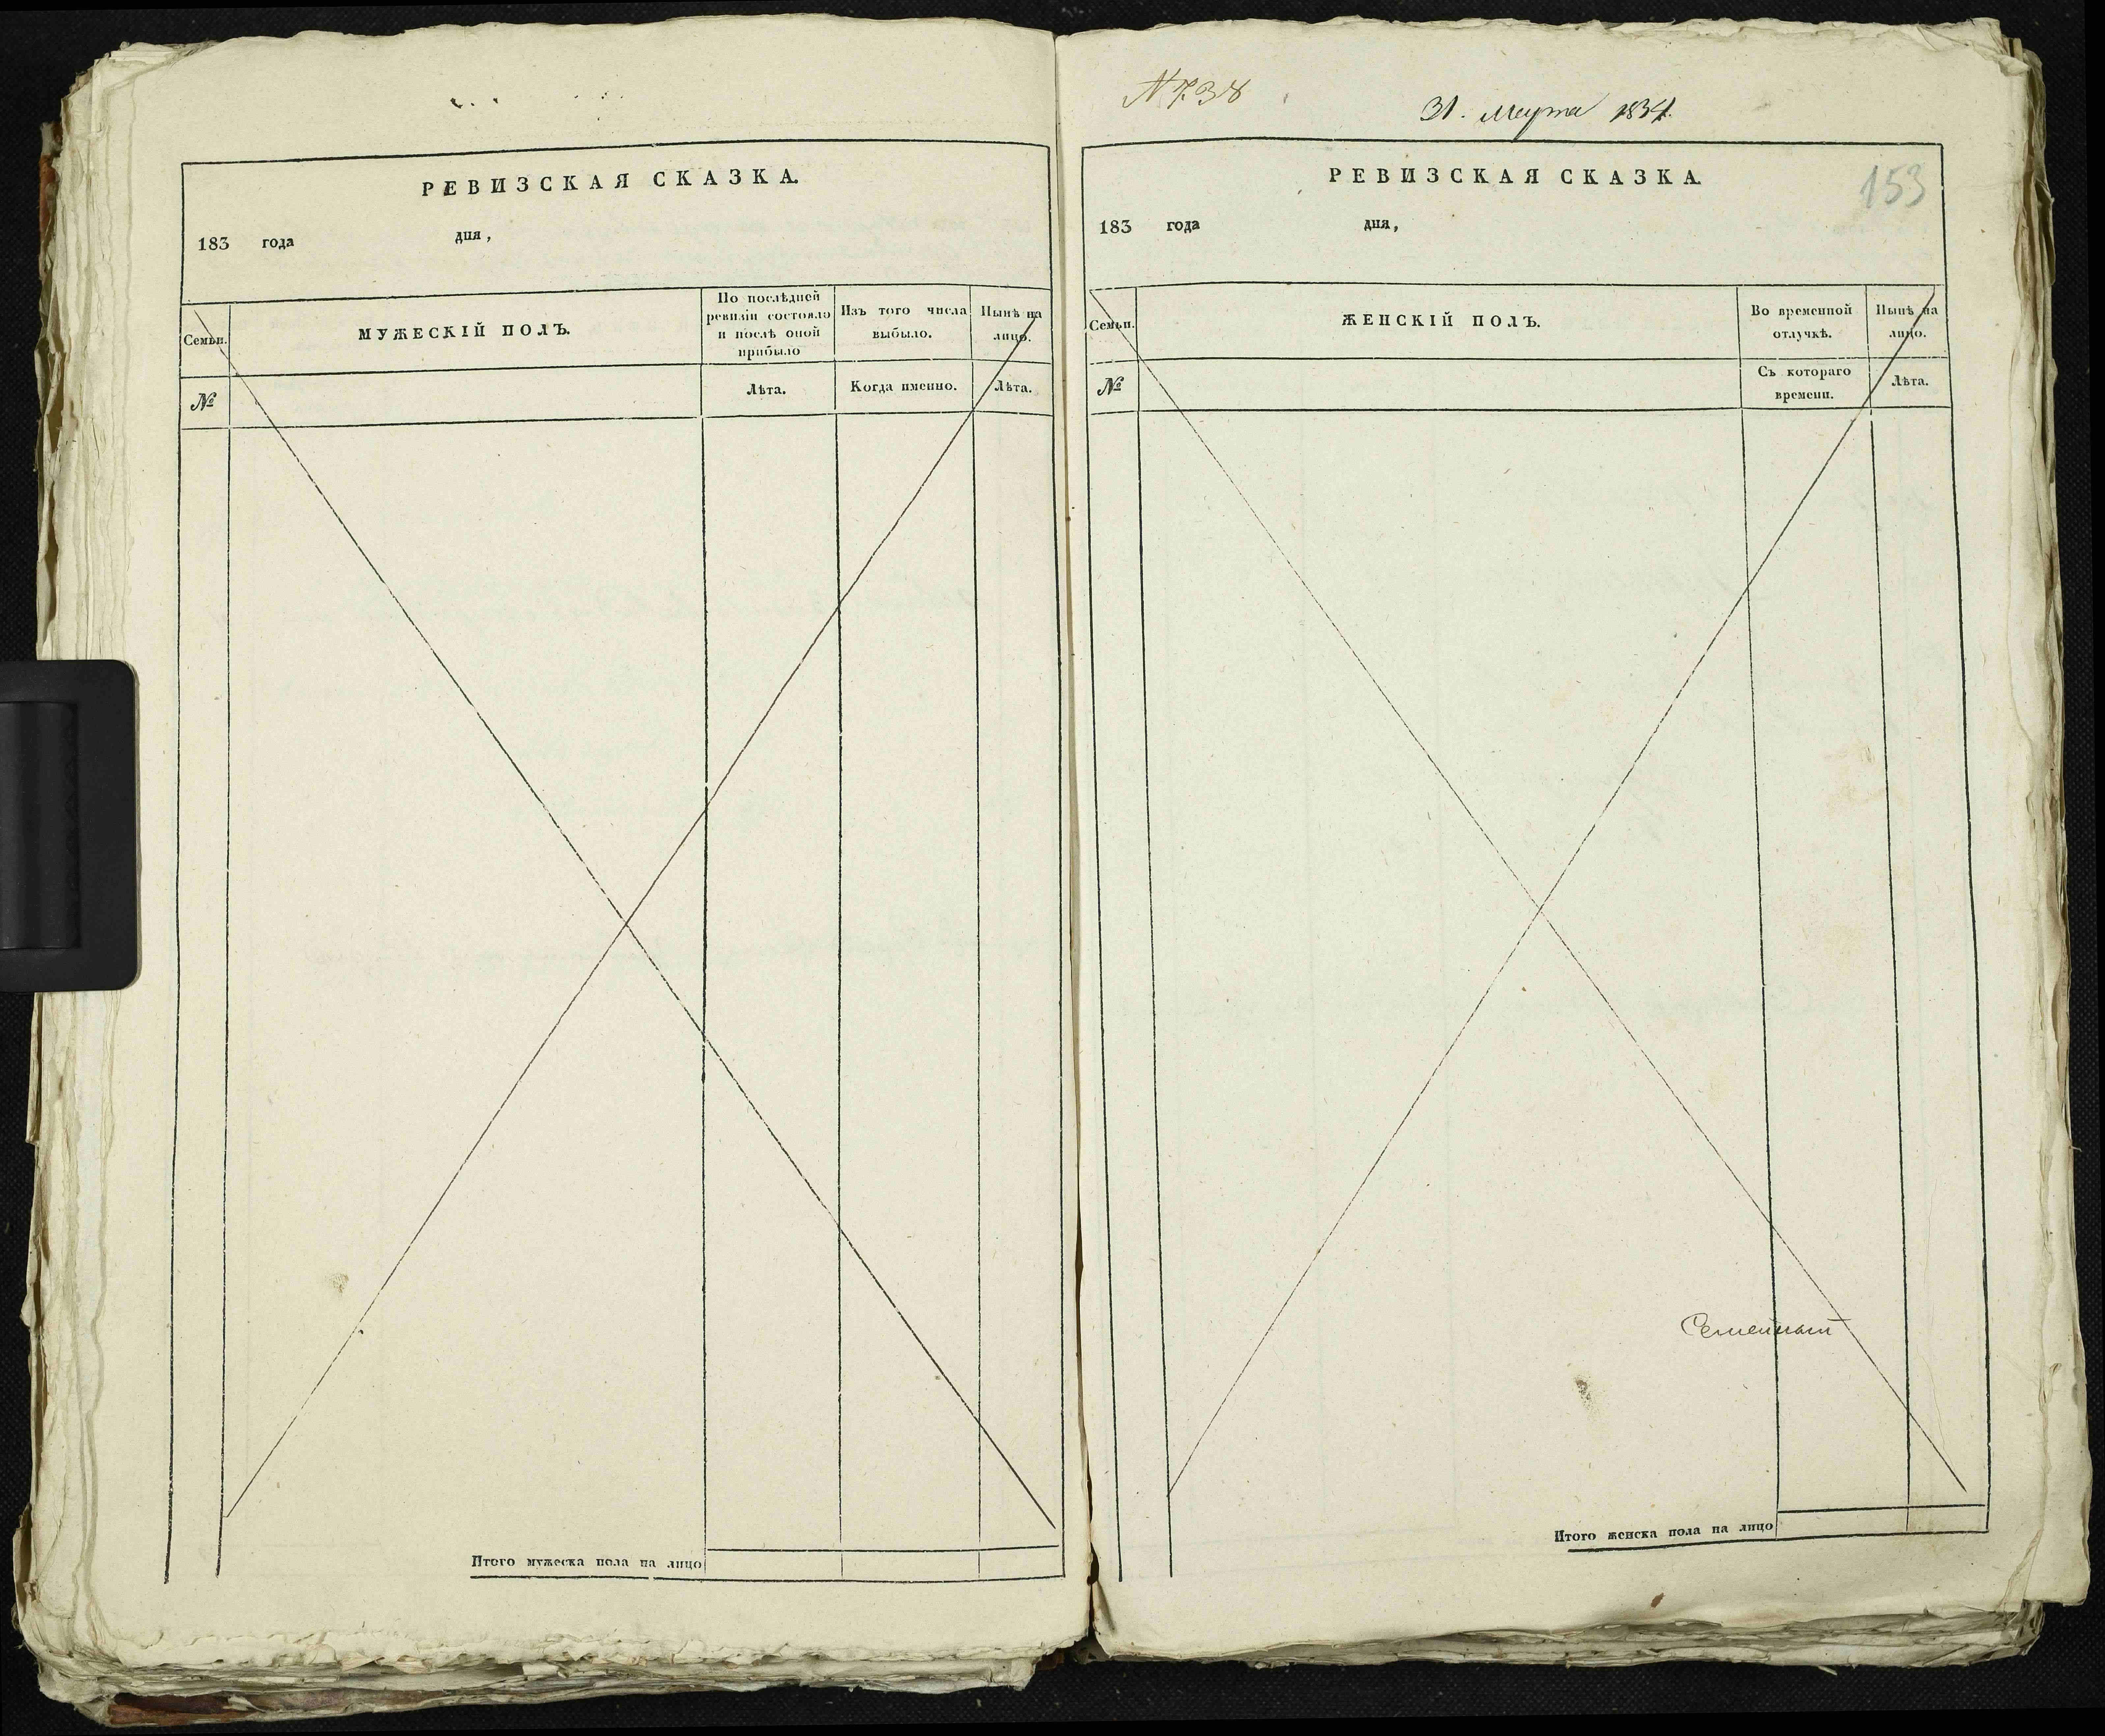 РЕВИЗСКАЯ СКАЗКА.
183 года дня,
Семьи.
МУЖЕСКІЙ ПОЛЪ.
По послѣдней
ревизіи состояло
и послѣ оной
прибыло
Изъ того числа
выбыло.
Нынѣ на
лицо.
№
Лѣта.
Когда именно.
Лѣта.
Итого мужеска пола на лицо
N 738
31. Марта 1834.
153
РЕВИЗСКАЯ СКАЗКА.
183 года дня,
Семьи.
ЖЕНСКІЙ ПОЛЪ.
Во временной
отлучкѣ.
Нынѣ на
лицо.
№
Съ котораго
времени.
Лѣта.
Итого женска пола на лицо